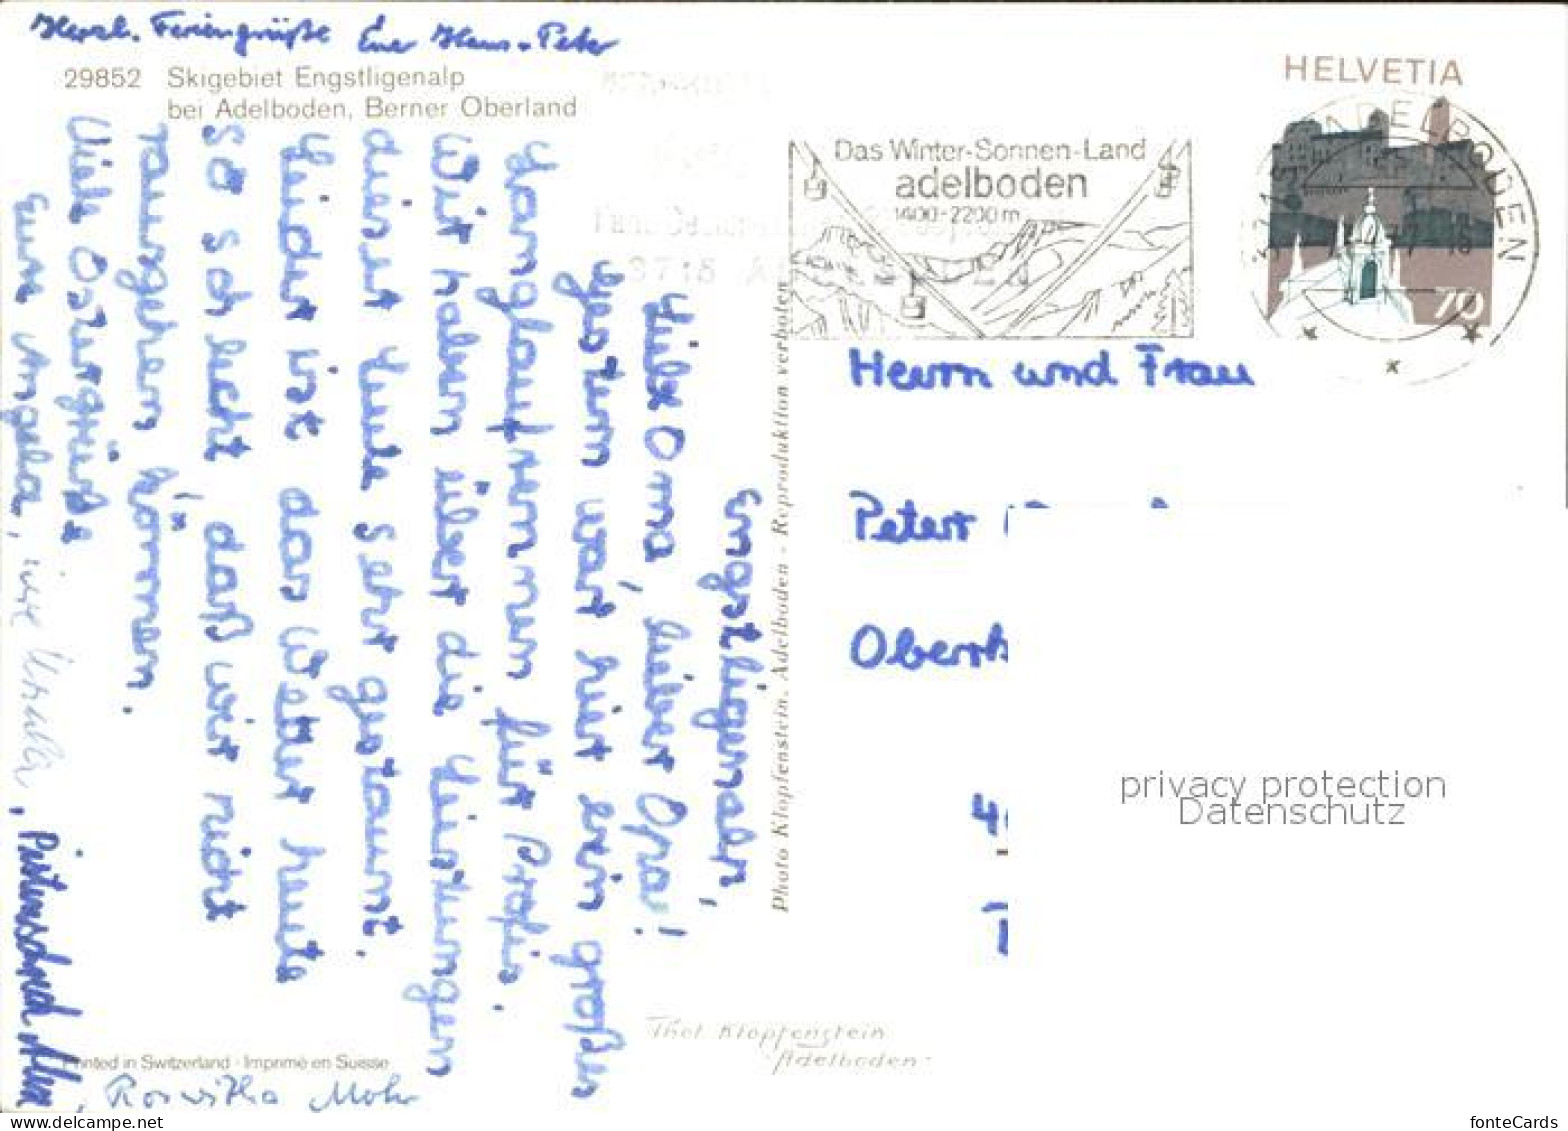 Herzl. Feriengrüße Euer Hans-Peter
29852 Skigebiet Engstligenalp
bei Adelboden, Berner Oberland
Engstligenalp,
Liebe Oma, lieber Opa!
Gestern war hier ein großes
Langlaufrennen für Profis.
Wir haben über die Leistungen
dieser Leute sehr gestaunt.
Leider ist das Wetter heute
so schlecht, daß wir nicht
rausgehen können.
Viele Ostergrüße
Eure Angela, Ursula,
Roswitha Mohr
Printed in Switzerland - Imprimé en Suisse
Photo Klopfenstein, Adelboden - Reproduktion verboten
Das Winter-Sonnen-Land
adelboden
1400-2200 m
HELVETIA
70
ADELBODEN
Herrn und Frau
Peter
Phot Klopfenstein
Adelboden
privacy protection
Datenschutz
www.delcampe.net
fonteCards